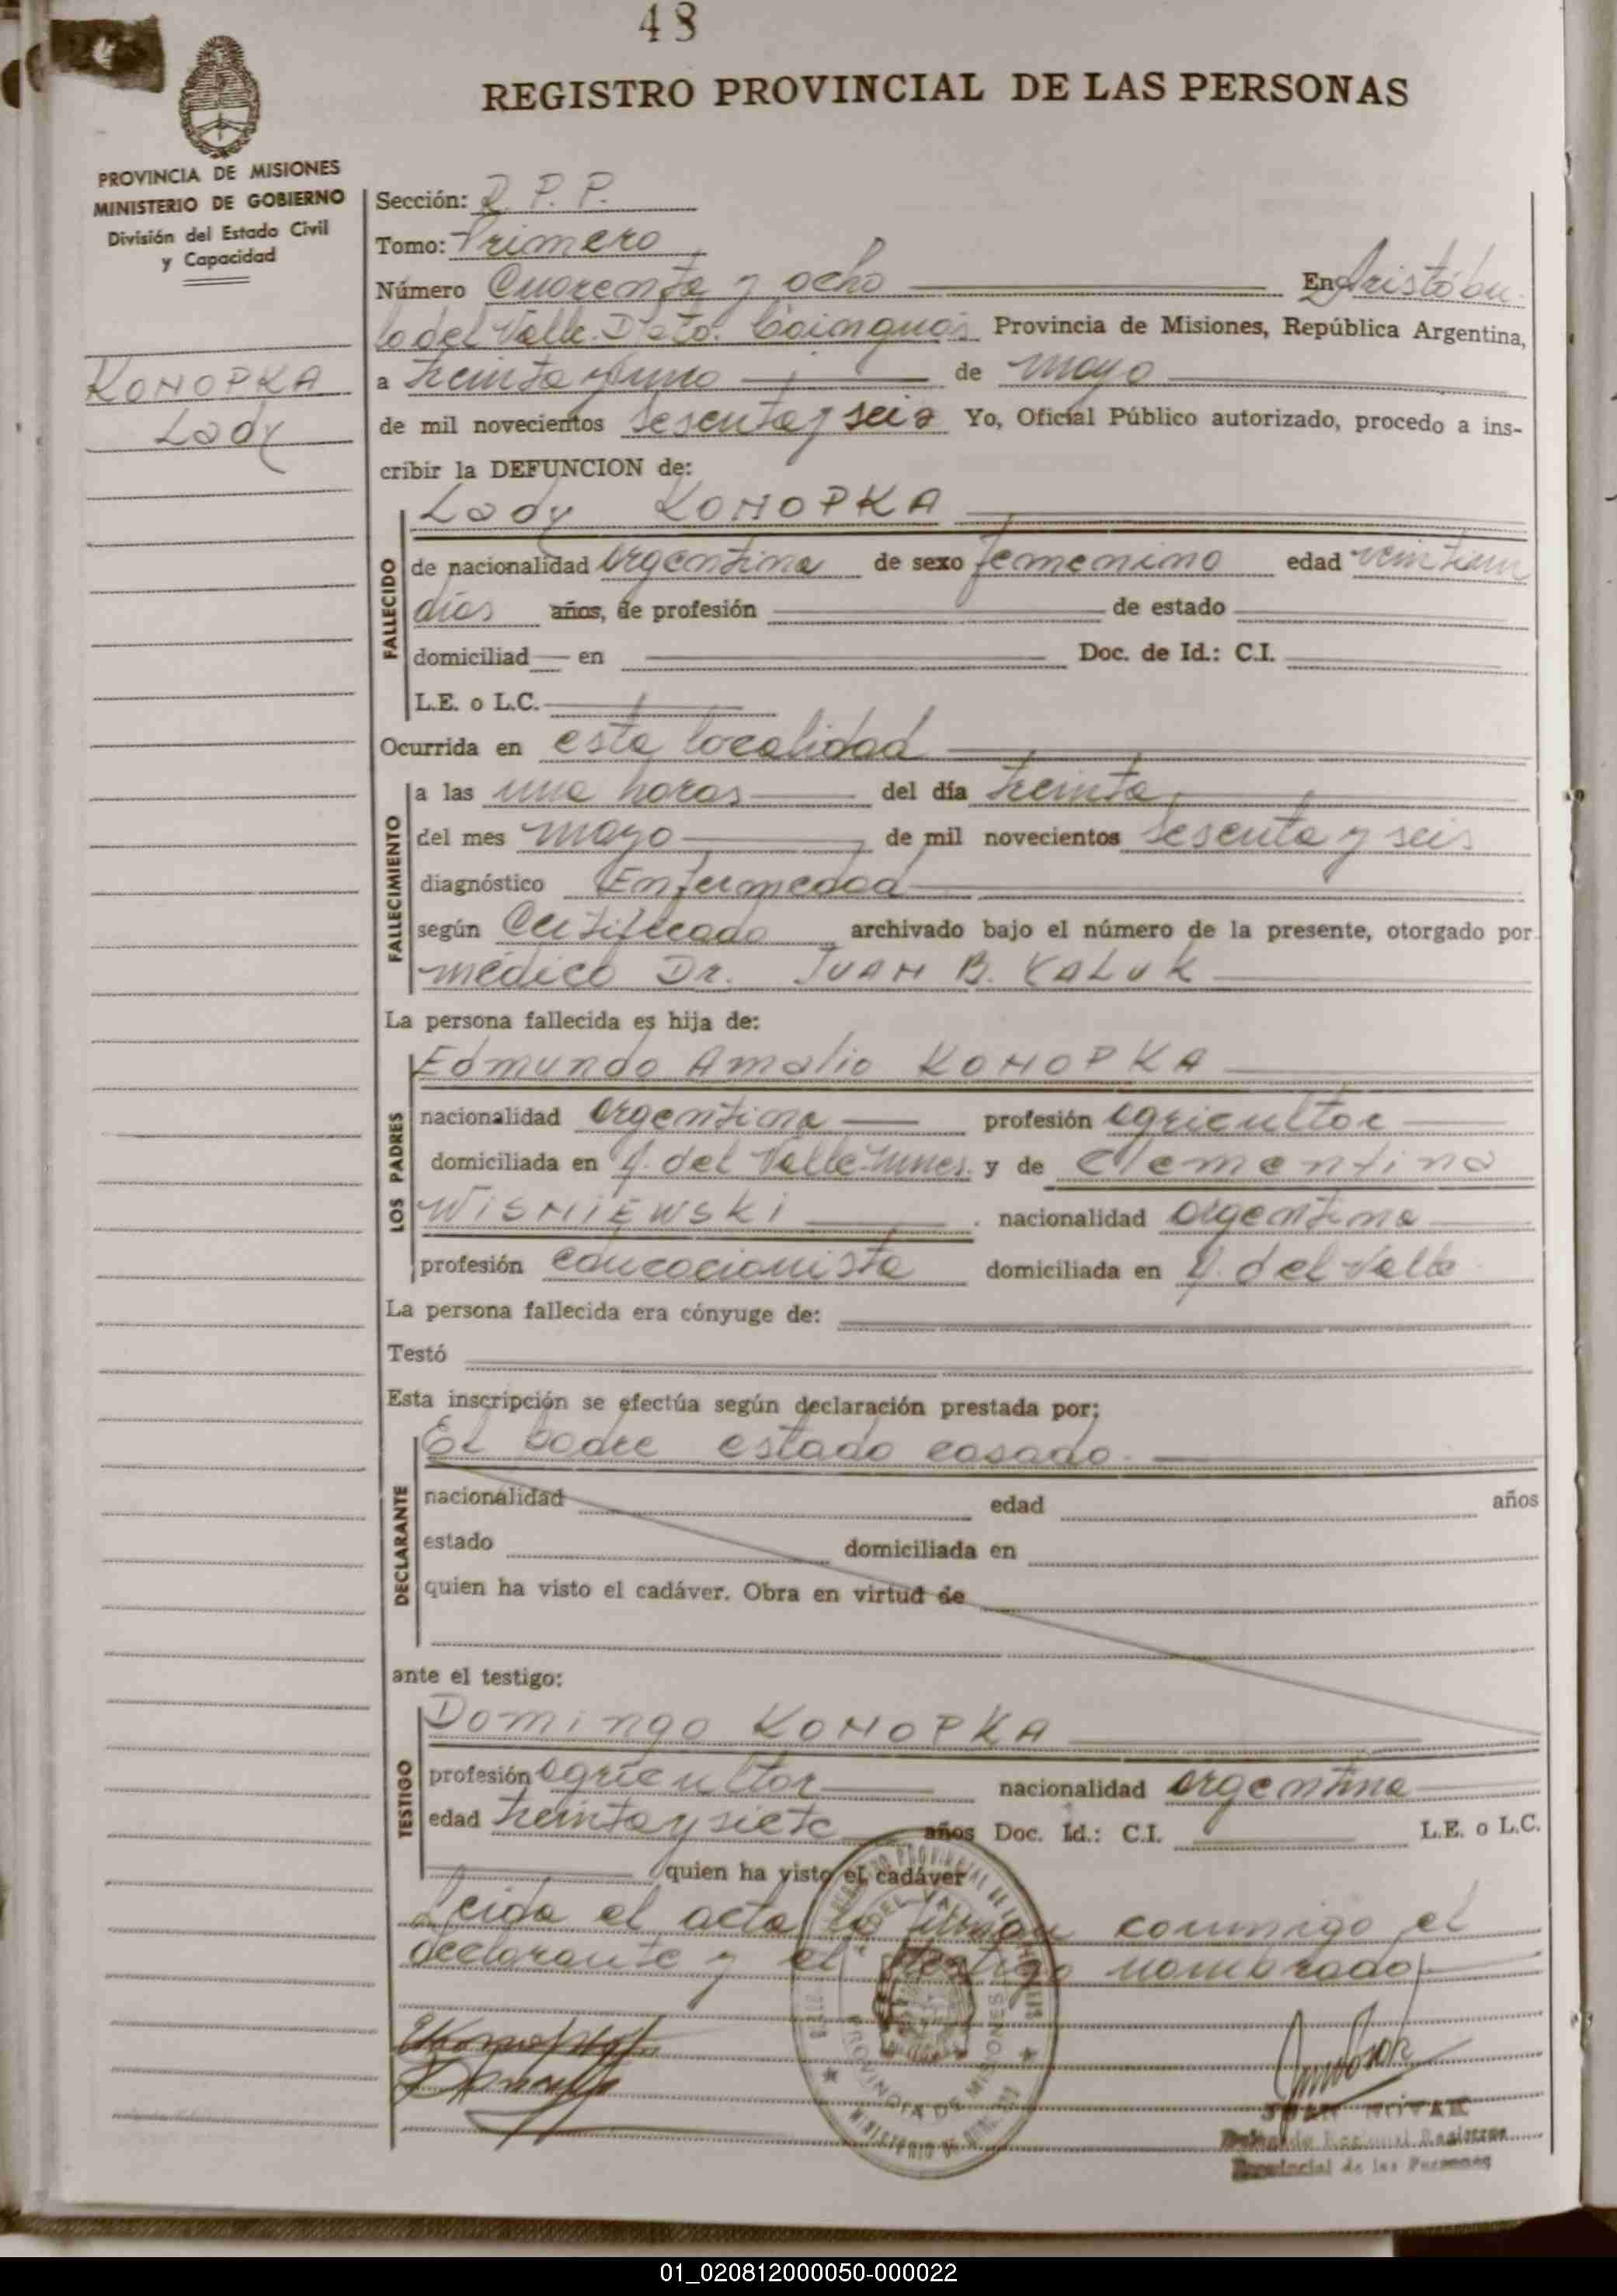 48
REGISTRO PROVINCIAL DE LAS PERSONAS
PROVINCIA DE MISIONES
MINISTERIO DE GOBIERNO
División del Estado Civil
y Capacidad
KONOPKA
Lady
Sección: R. P. P.
Tomo: Primero
Número Cuarenta y ocho En Aristóbu-
lo del Valle. Dpto. Cainguás Provincia de Misiones, República Argentina,
a treinta y uno de mayo
de mil novecientos sesenta y seis Yo, Oficial Público autorizado, procedo a ins-
cribir la DEFUNCION de:
Lady KONOPKA
FALLECIDO
de nacionalidad argentina de sexo femenino edad veintiun
días años, de profesión de estado
domiciliad en Doc. de Id.: C.I.
L.E. o L.C.
Ocurrida en esta localidad
FALLECIMIENTO
a las una horas del día treinta
del mes mayo de mil novecientos sesenta y seis
diagnóstico Enfermedad
según Certificado archivado bajo el número de la presente, otorgado por
médico Dr. JUAN B. KALUK
La persona fallecida es hija de:
LOS PADRES
Edmundo Amalio KONOPKA
nacionalidad argentina profesión agricultor
domiciliada en A. del Valle y de Clementina
WISNIEWSKI nacionalidad argentina
profesión educacionista domiciliada en A. del Valle
La persona fallecida era cónyuge de:
Testó
Esta inscripción se efectúa según declaración prestada por;
DECLARANTE
El padre estado casado.
nacionalidad edad años
estado domiciliada en
quien ha visto el cadáver. Obra en virtud de
ante el testigo:
TESTIGO
Domingo KONOPKA
profesión agricultor nacionalidad argentina
edad treinta y siete años Doc. Id.: C.I. L.E. o L.C.
quien ha visto el cadáver
Leida el acta la firman conmigo el
declarante y el testigo nombrado
PROVINCIA DE MISIONES
JUAN NOVAK
Delegado Regional Registro
Provincial de las Personas
01_020812000050-000022